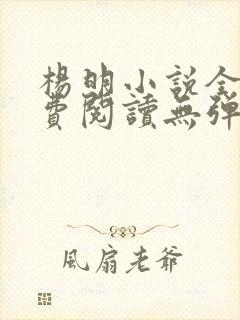 楊明小說全
費閱讀無彈
風扇老爺